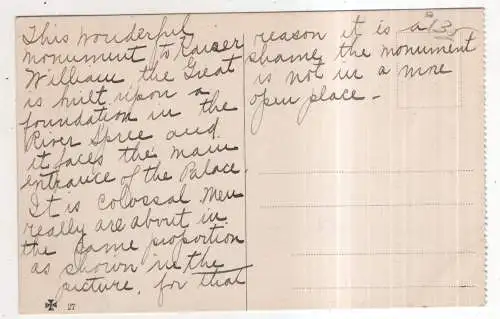 This wonderful
monument to Kaiser
William the Great
is built upon a
foundation in the
River Spree and
it faces the main
entrance of the Palace.
It is colossal Men
really are about in
the same proportion
as shown in the
picture. for that
reason it is a
shame the monument
is not in a more
open place -
135
27